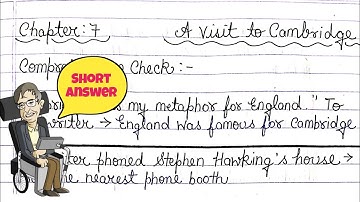 Chapter:7 A Visit to Cambridge
Check:-
SHORT
ANSWER
my metaphor for England." To
→ England was famous for Cambridge
phoned Stephen Hawking's house →
nearest phone booth